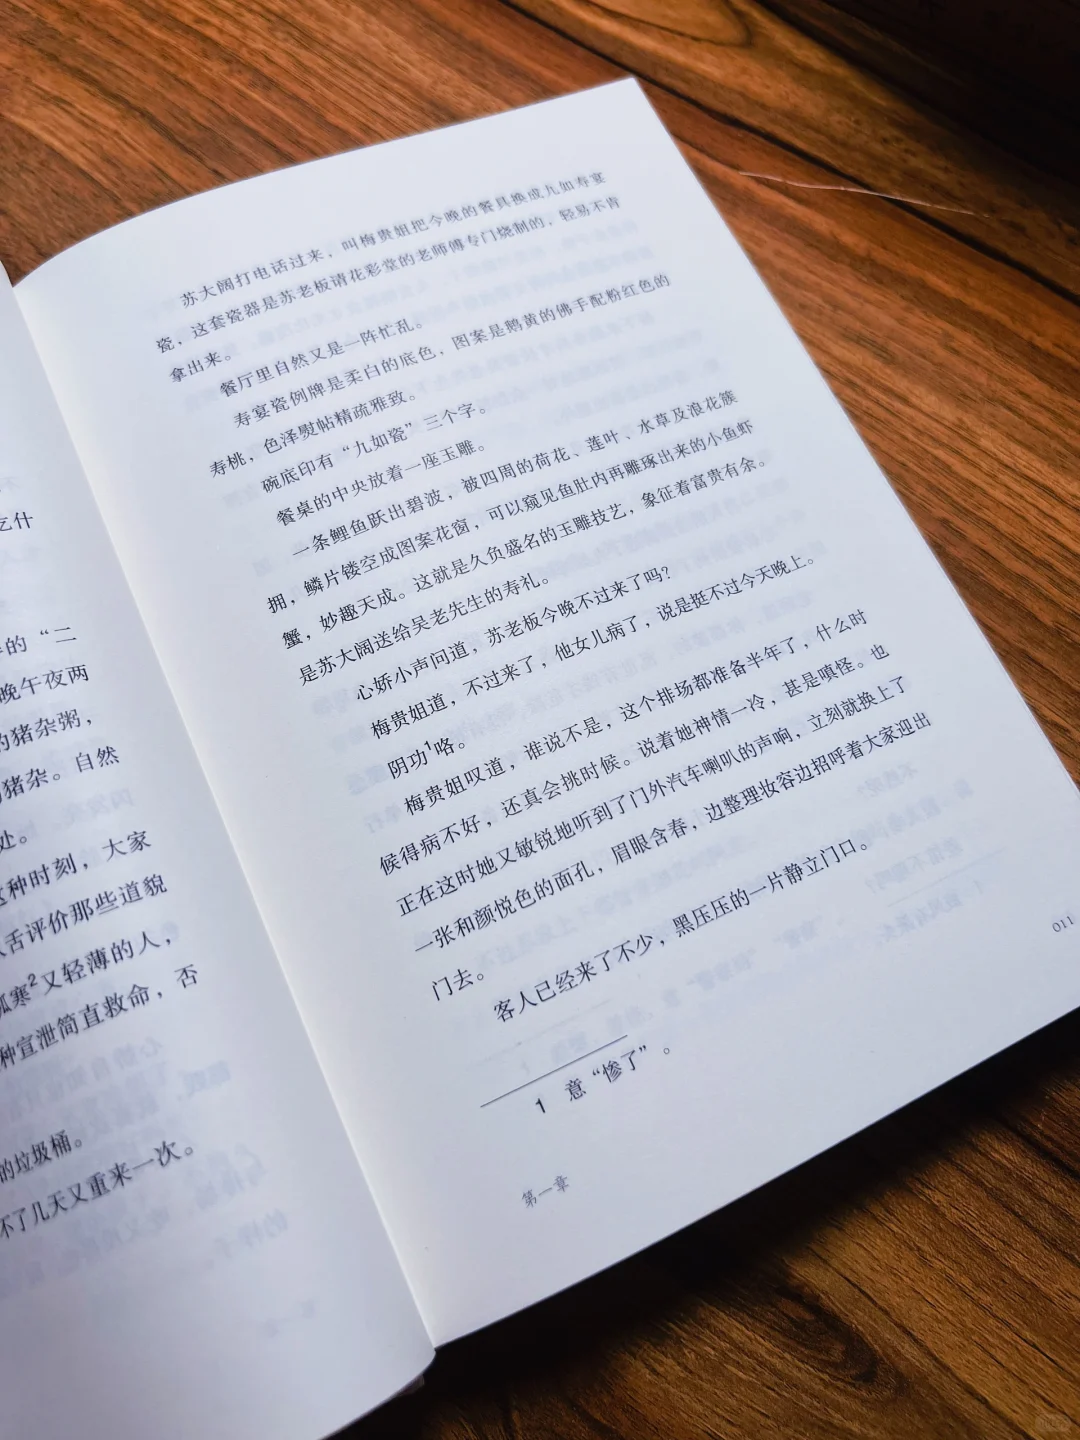 乞什
样的“二
晚午夜两
的猪杂粥，
猪杂。自然
处。
这种时刻，大家
舌评价那些道貌
孤寒²又轻薄的人，
种宣泄简直救命，否
的垃圾桶。
不了几天又重来一次。
苏大阔打电话过来，叫梅贵姐把今晚的餐具换成九如寿宴
瓷，这套瓷器是苏老板请花彩堂的老师傅专门烧制的，轻易不肯
拿出来。
餐厅里自然又是一阵忙乱。
寿宴瓷例牌是柔白的底色，图案是鹅黄的佛手配粉红色的
寿桃，色泽熨帖精疏雅致。
碗底印有“九如瓷”三个字。
餐桌的中央放着一座玉雕。
一条鲤鱼跃出碧波，被四周的荷花、莲叶、水草及浪花簇
拥，鳞片镂空成图案花窗，可以窥见鱼肚内再雕琢出来的小鱼虾
蟹，妙趣天成。这就是久负盛名的玉雕技艺，象征着富贵有余。
是苏大阔送给吴老先生的寿礼。
心娇小声问道，苏老板今晚不过来了吗？
梅贵姐道，不过来了，他女儿病了，说是挺不过今天晚上。
阴功¹咯。
梅贵姐叹道，谁说不是，这个排场都准备半年了，什么时
候得病不好，还真会挑时候。说着她神情一冷，甚是嗔怪。也
正在这时她又敏锐地听到了门外汽车喇叭的声响，立刻就换上了
一张和颜悦色的面孔，眉眼含春，边整理妆容边招呼着大家迎出
门去。
客人已经来了不少，黑压压的一片静立门口。
1 意“惨了”。
第一章
011